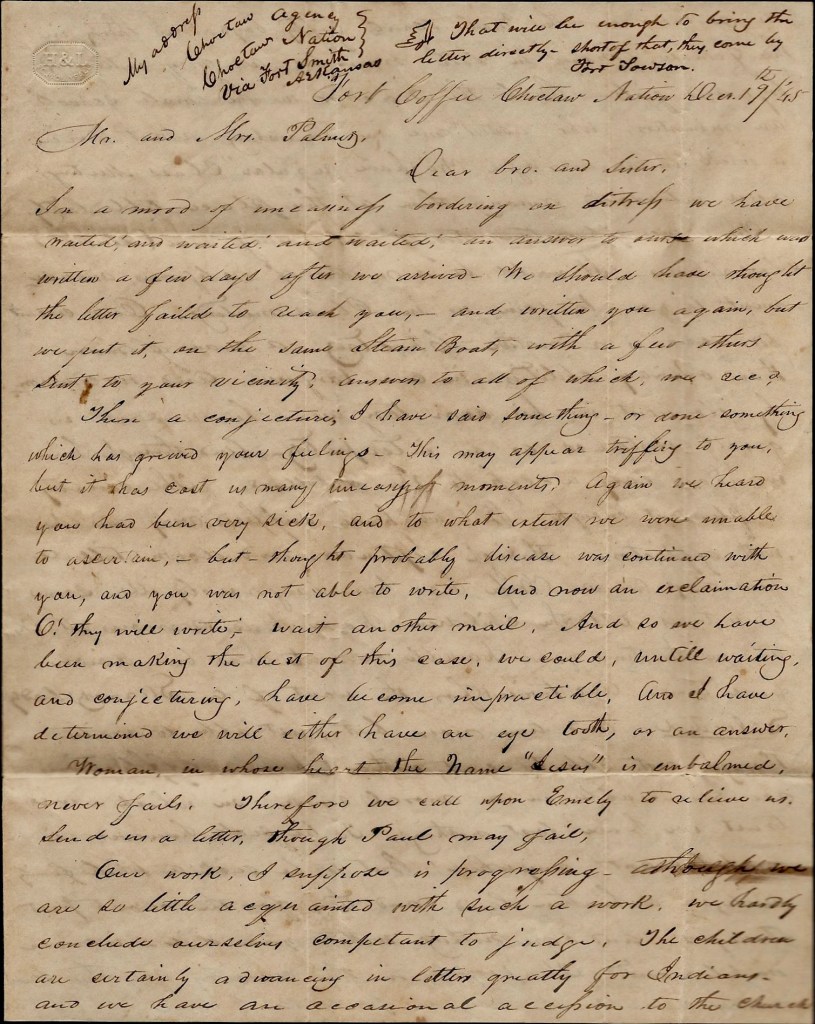 H&I
My address
Choctaw Agency
Choctaw Nation
Via Fort Smith
Arkansas
That will be enough to bring the
letter directly - short of that, they come by
Fort Towson.
Fort Coffee Choctaw Nation Decr. 19th/45
Mr. and Mrs. Palmer,
Dear bro. and Sister,
In a mood of uneasiness bordering on distress we have
waited, and waited, and waited, an answer to ours which was
written a few days after we arrived - We should have thought
the letter failed to reach you, - and written you again, but
we put it, on the same Steam Boat, with a few others
sent to your vicinity; answers to all of which, we
Then a conjecture; I have said something - or done something
which has greived your feelings - This may appear triffing to you,
but it has cost us many uneasy moments. Again we heard
you had been very sick, and to what extent we were unable
to ascertain, - but - thought probably disease was continued with
you, and you was not able to write, And now an exclaimation
O! they will write, - wait another mail. And so we have
been making the best of this case, we could, untill waiting,
and conjecturing, have become impractible, And I have
determined we will either have an eye tooth, or an answer.
Woman, in whose heart the Name "Jesus" is embalmed,
never fails. Therefore we call upon Emely to relieve us.
Send us a letter, though Paul may fail,
Our work, I suppose is progressing - although we
are so little acquainted with such a work, we hardly
conclude ourselves competant to judge. The children
are certainly advancing in letters greatly for Indians -
and we have an accasional accession to the church